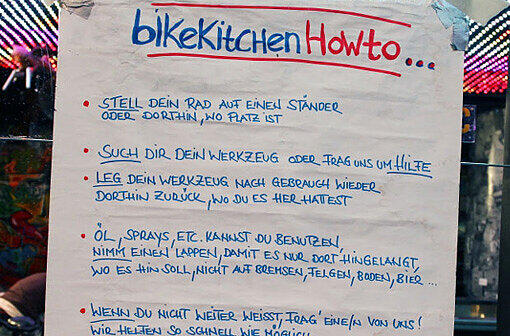 bikeKitchen Howto...
• STELL DEIN RAD AUF EINEN STÄNDER
ODER DORTHIN, WO PLATZ IST
• SUCH DIR DEIN WERKZEUG ODER FRAG UNS UM HILFE
• LEG DEIN WERKZEUG NACH GEBRAUCH WIEDER
DORTHIN ZURÜCK, WO DU ES HER HATTEST
• ÖL, SPRAYS, ETC. KANNST DU BENUTZEN,
NIMM EINEN LAPPEN, DAMIT ES NUR DORT HINGELANGT,
WO ES HIN SOLL, NICHT AUF BREMSEN, FELGEN, BODEN, BIER ...
• WENN DU NICHT WEITER WEISST, FRAG' EINE/N VON UNS!
WIR HELFEN SO SCHNELL WIE MÖGLICH